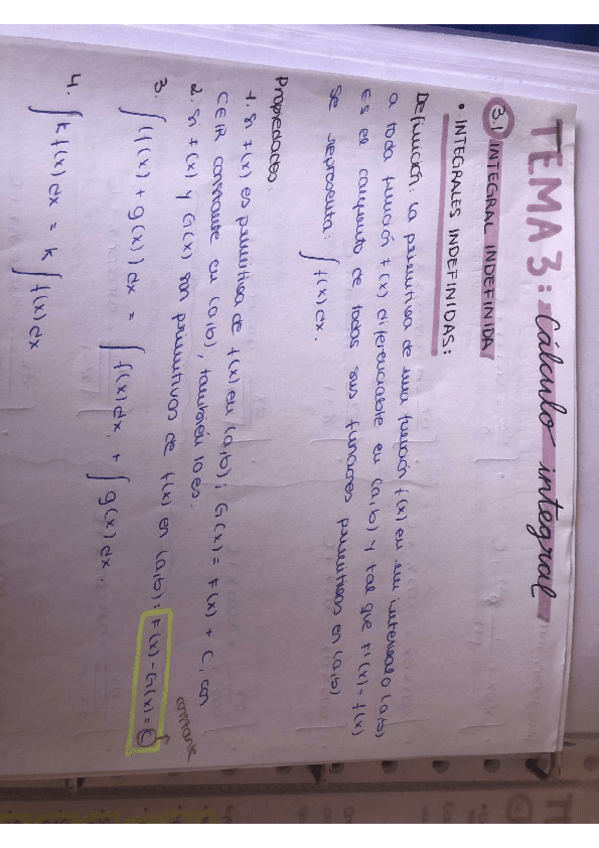 TEMA 3: Cálculo integral
3.1 INTEGRAL INDEFINIDA
• INTEGRALES INDEFINIDAS:
Definición: la primitiva de una función f(x) en un intervalo (a,b)
a toda función F(x) diferenciable en (a,b) y tal que F'(x) = f(x)
Es el conjunto de todas sus funciones primitivas en (a,b)
se representa: ∫ f(x) dx.
Propiedades:
1. si F(x) es primitiva de f(x) en (a,b); G(x) = F(x) + C, con
C∈IR constante en (a,b), también lo es.
2. si F(x) y G(x) son primitivas de f(x) en (a,b): F(x) - G(x) = C
constante
3. ∫ (f(x) + g(x)) dx = ∫ f(x) dx + ∫ g(x) dx.
4. ∫ k f(x) dx = k ∫ f(x) dx